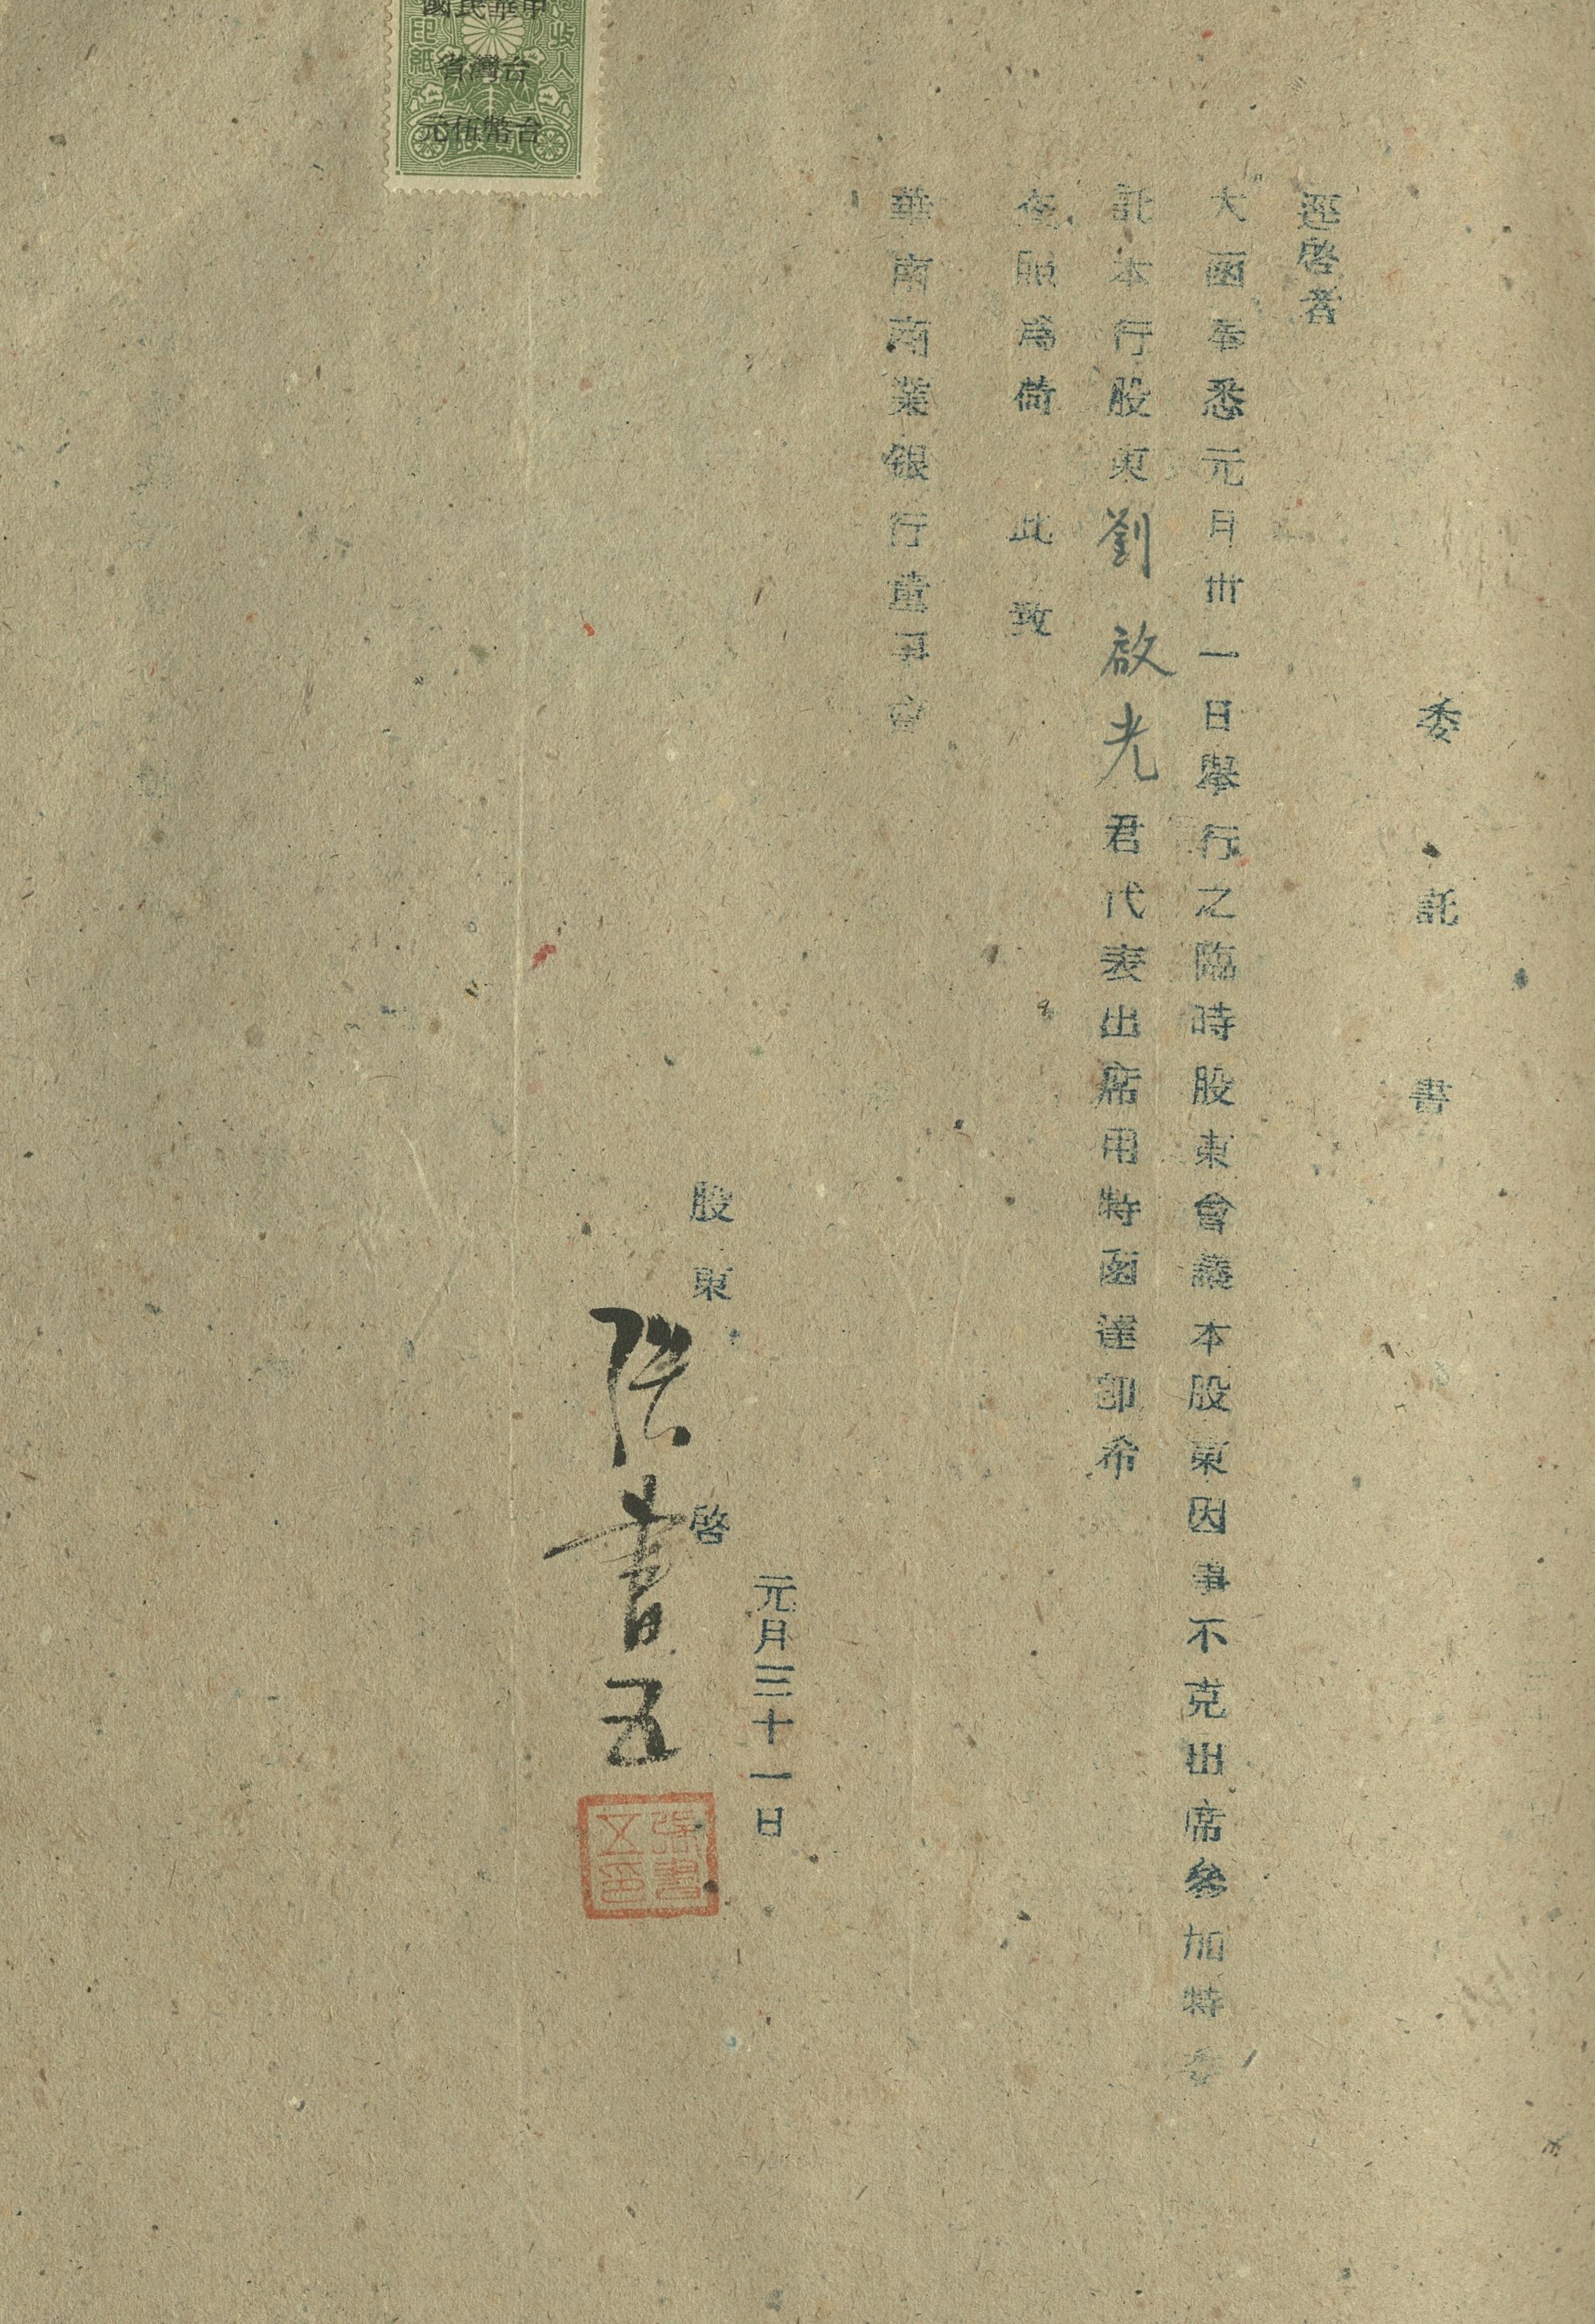 委託書
逕啓者
大函奉悉元月卅一日舉行之臨時股東會議本股東因事不克出席參加特委
託本行股東劉啟光君代表出席用特函達卽希
查照爲荷 此致
華南商業銀行董事會
元月三十一日
股東 張書五 啓
張書五印
中華民國
收入印紙
台灣省
台幣伍元